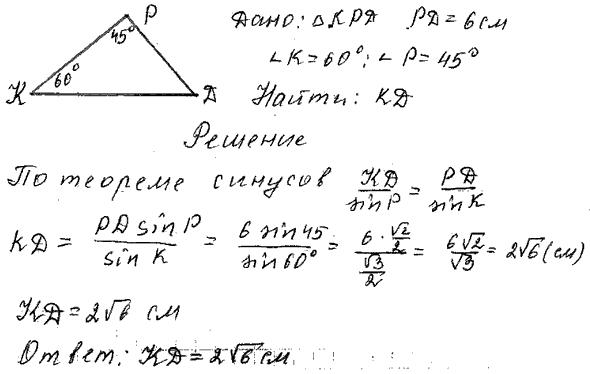 P
45°
60°
К
D
Дано: △KPD PD = 6 см
∠K = 60°; ∠P = 45°
Найти: KD
Решение
По теореме синусов KD/sin P = PD/sin K
KD = PD sin P/sin K = 6 sin 45/sin 60° = (6 · √2/2)/(√3/2) = 6√2/√3 = 2√6 (см)
KD = 2√6 см
Ответ: KD = 2√6 см